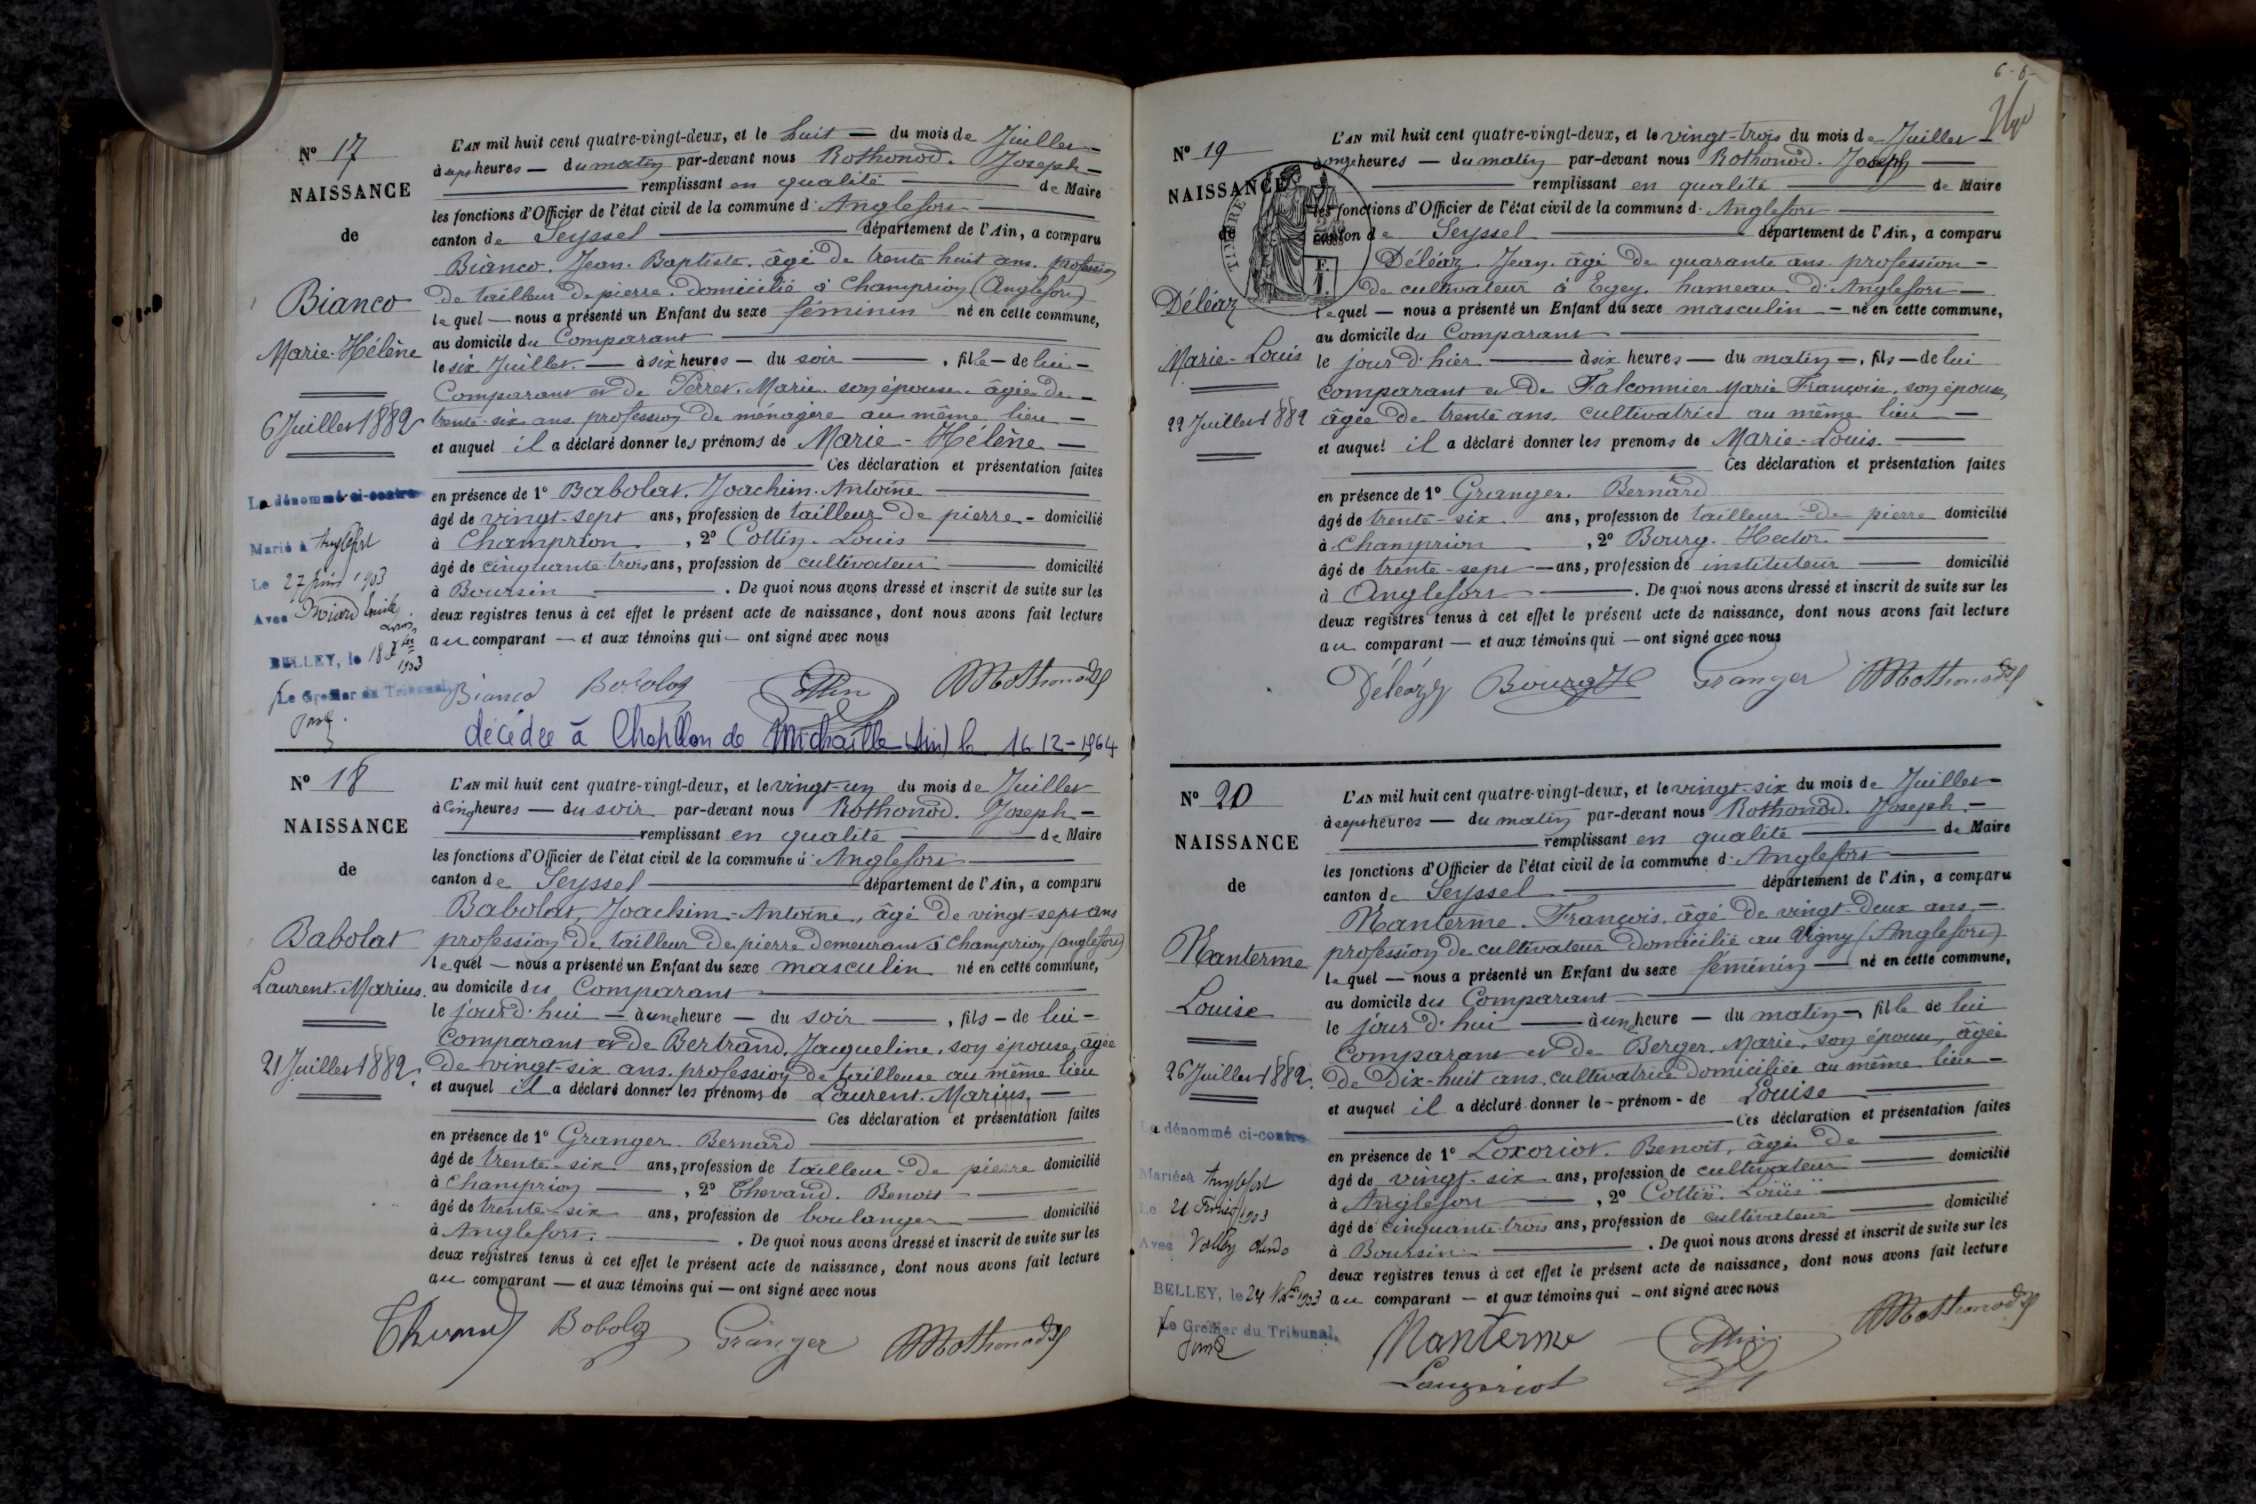 N° 17
NAISSANCE
de
Bianco
Marie-Hélène
6 Juillet 1882
Le dénommé ci-contre
Marié à Anglefort
Le 27 Juin 1903
Avec
BELLEY, le 18
1903
Le Greffier du Tribunal,
L'AN mil huit cent quatre-vingt-deux, et le huit — du mois de Juillet —
à sept heures — du matin par-devant nous Rothonod. Joseph —
remplissant en qualité — de Maire
les fonctions d'Officier de l'état civil de la commune d'Anglefort —
canton de Seyssel — département de l'Ain, a comparu
Bianco. Jean. Baptiste. âgé de trente huit ans. profession
de tailleur de pierre. domicilié à Champrion (Anglefort)
lequel — nous a présenté un Enfant du sexe féminin né en cette commune,
au domicile du Comparant —
le six Juillet. — à six heures — du soir — , fille — de lui —
Comparant et de Perret. Marie. son épouse. âgée de —
trente-six ans profession de ménagère au même lieu —
et auquel il a déclaré donner les prénoms de Marie-Hélène —
Ces déclaration et présentation faites
en présence de 1° Babolat. Joachim. Antoine —
âgé de vingt-sept ans, profession de tailleur de pierre - domicilié
à Champrion , 2° Cottin. Louis —
âgé de cinquante-trois ans, profession de cultivateur — domicilié
à Boursin — . De quoi nous avons dressé et inscrit de suite sur les
deux registres tenus à cet effet le présent acte de naissance, dont nous avons fait lecture
au comparant — et aux témoins qui — ont signé avec nous
Bianco Babolat Cottin Rothonod
décédée à Chatillon de Michaille (Ain) le 16-12-1964
N° 18
NAISSANCE
de
Babolat
Laurent-Marius.
21 Juillet 1882.
L'AN mil huit cent quatre-vingt-deux, et le vingt-un du mois de Juillet
à cinq heures — du soir par-devant nous Rothonod. Joseph —
remplissant en qualité — de Maire
les fonctions d'Officier de l'état civil de la commune d'Anglefort —
canton de Seyssel — département de l'Ain, a comparu
Babolat, Joachim-Antoine, âgé de vingt-sept ans
profession de tailleur de pierre demeurant à Champrion (Anglefort)
lequel — nous a présenté un Enfant du sexe masculin né en cette commune,
au domicile du Comparant —
le jour d'hui — à une heure — du soir — , fils — de lui —
Comparant et de Bertrand, Jacqueline, son épouse, âgée
de vingt-six ans. profession de tailleuse au même lieu
et auquel il a déclaré donner les prénoms de Laurent. Marius. —
Ces déclaration et présentation faites
en présence de 1° Granger. Bernard —
âgé de trente-six ans, profession de tailleur de pierre domicilié
à Champrion — , 2° Thevand. Benoit —
âgé de trente-six ans, profession de boulanger — domicilié
à Anglefort. — . De quoi nous avons dressé et inscrit de suite sur les
deux registres tenus à cet effet le présent acte de naissance, dont nous avons fait lecture
au comparant — et aux témoins qui — ont signé avec nous
Babolat Granger Rothonod
N° 19
NAISSANCE
de
Déléaz
Marie-Louis
22 Juillet 1882
TIMBRE
L'AN mil huit cent quatre-vingt-deux, et le vingt-trois du mois de Juillet —
à onze heures — du matin par-devant nous Rothonod. Joseph —
remplissant en qualité — de Maire
les fonctions d'Officier de l'état civil de la commune d'Anglefort —
canton de Seyssel — département de l'Ain, a comparu
Déléaz. Jean. âgé de quarante ans. profession —
de cultivateur à Egey. hameau. d'Anglefort —
lequel — nous a présenté un Enfant du sexe masculin — né en cette commune,
au domicile du Comparant —
le jour d'hier — à six heures — du matin — , fils — de lui
comparant et de Falconnier Marie Françoise. son épouse,
âgée de trente ans. cultivatrice au même lieu —
et auquel il a déclaré donner les prénoms de Marie-Louis. —
Ces déclaration et présentation faites
en présence de 1° Granger. Bernard
âgé de trente-six ans, profession de tailleur de pierre domicilié
à Champrion , 2° Bourg. Hector —
âgé de trente-sept — ans, profession de instituteur — domicilié
à Anglefort — . De quoi nous avons dressé et inscrit de suite sur les
deux registres tenus à cet effet le présent acte de naissance, dont nous avons fait lecture
au comparant — et aux témoins qui — ont signé avec nous
Déléaz Bourg H Granger Rothonod
N° 20
NAISSANCE
de
Nanterme
Louise
26 Juillet 1882.
La dénommé ci-contre
Mariée à Anglefort
Le 21 Février 1903
Avec
BELLEY, le 24 1903
Le Greffier du Tribunal,
L'AN mil huit cent quatre-vingt-deux, et le vingt-six du mois de Juillet —
à sept heures — du matin par-devant nous Rothonod. Joseph —
remplissant en qualité — de Maire
les fonctions d'Officier de l'état civil de la commune d'Anglefort —
canton de Seyssel — département de l'Ain, a comparu
Nanterme. François. âgé de vingt-deux ans —
profession de cultivateur domicilié au Vigny (Anglefort)
lequel — nous a présenté un Enfant du sexe féminin — né en cette commune,
au domicile du Comparant —
le jour d'hui — à une heure — du matin — , fille de lui
comparant et de Berger. Marie, son épouse, âgée
de Dix-huit ans, cultivatrice domiciliée au même lieu —
et auquel il a déclaré donner le - prénom - de Louise —
Ces déclaration et présentation faites
en présence de 1° Loxoriot. Benoit, âgé de —
âgé de vingt-six ans, profession de cultivateur — domicilié
à Anglefort — , 2° Cottin. Louis —
âgé de cinquante-trois ans, profession de cultivateur — domicilié
à Boursin — . De quoi nous avons dressé et inscrit de suite sur les
deux registres tenus à cet effet le présent acte de naissance, dont nous avons fait lecture
au comparant — et aux témoins qui — ont signé avec nous
Nanterme Cottin Rothonod
Lauzoriot